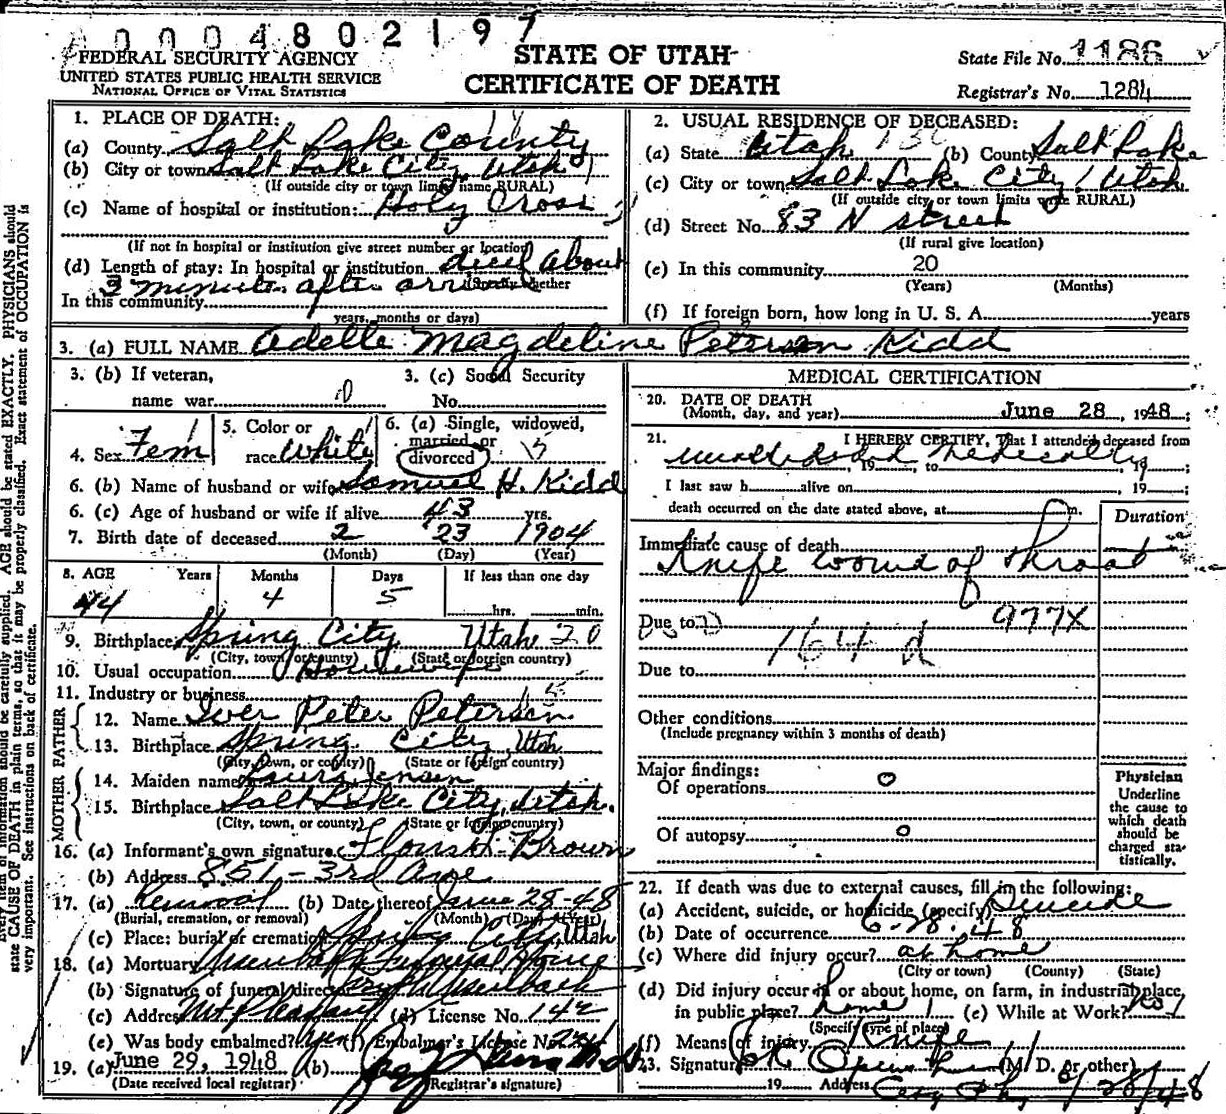 0004802197
FEDERAL SECURITY AGENCY
UNITED STATES PUBLIC HEALTH SERVICE
NATIONAL OFFICE OF VITAL STATISTICS
STATE OF UTAH
CERTIFICATE OF DEATH
State File No. 1186
Registrar's No. 1284
1. PLACE OF DEATH:
(a) County Salt Lake County
(b) City or town Salt Lake City, Utah
(If outside city or town limits name RURAL)
(c) Name of hospital or institution: Holy Cross
(If not in hospital or institution give street number or location)
(d) Length of stay: In hospital or institution died about
3 minutes after arrival
(Specify whether
In this community
years, months or days)
2. USUAL RESIDENCE OF DECEASED:
(a) State Utah (b) County Salt Lake
(c) City or town Salt Lake City, Utah
(If outside city or town limits write RURAL)
(d) Street No. 83 N street
(If rural give location)
(e) In this community 20
(Years) (Months)
(f) If foreign born, how long in U. S. A. years
3. (a) FULL NAME Adelle Magdeline Peterson Kidd
3. (b) If veteran,
name war 0
3. (c) Social Security
No.
4. Sex Fem
5. Color or
race White
6. (a) Single, widowed,
married or
divorced
6. (b) Name of husband or wife Samuel H. Kidd
6. (c) Age of husband or wife if alive 43 yrs.
7. Birth date of deceased 2 23 1904
(Month) (Day) (Year)
8. AGE Years Months Days If less than one day
44 4 5 hrs. min.
9. Birthplace Spring City Utah 20
(City, town or county) (State or foreign country)
10. Usual occupation Housewife
11. Industry or business
FATHER
12. Name Iver Peter Peterson
13. Birthplace Spring City, Utah
(City, town, or county) (State or foreign country)
MOTHER
14. Maiden name Laura Jensen
15. Birthplace Salt Lake City, Utah.
(City, town, or county) (State or foreign country)
16. (a) Informant's own signature Brown
(b) Address 851 - 3rd Ave
17. (a) Removal (b) Date thereof June 28-48
(Burial, cremation, or removal) (Month) (Day) (Year)
(c) Place: burial or cremation Spring City, Utah
18. (a) Mortuary Funeral Home
(b) Signature of funeral director
(c) Address Mt Pleasant (d) License No. 142
(e) Was body embalmed? yes (f) Embalmer's License No.
19. (a) June 29, 1948 (b)
(Date received local registrar) (Registrar's signature)
MEDICAL CERTIFICATION
20. DATE OF DEATH
(Month, day, and year) June 28, 1948;
21. I HEREBY CERTIFY, That I attended deceased from
unattended medically, 19 , to , 19 ;
I last saw h alive on , 19 ;
death occurred on the date stated above, at m.
Duration
Immediate cause of death
Knife wound of throat
977X
Due to
164 d
Due to
Other conditions
(Include pregnancy within 3 months of death)
Major findings:
Of operations 0
Of autopsy 0
Physician
Underline
the cause to
which death
should be
charged sta-
tistically.
22. If death was due to external causes, fill in the following:
(a) Accident, suicide, or homicide (specify) Suicide
(b) Date of occurrence 6-28-48
(c) Where did injury occur? at home
(City or town) (County) (State)
(d) Did injury occur in or about home, on farm, in industrial place,
in public place? home (e) While at Work? no
(Specify type of place)
(f) Means of injury Knife
23. Signature (M. D. or other)
19 Address City 6/28/48
state CAUSE OF DEATH in plain terms, so that it may be properly classified. Exact statement of OCCUPATION is
very important. See instructions on back of certificate.